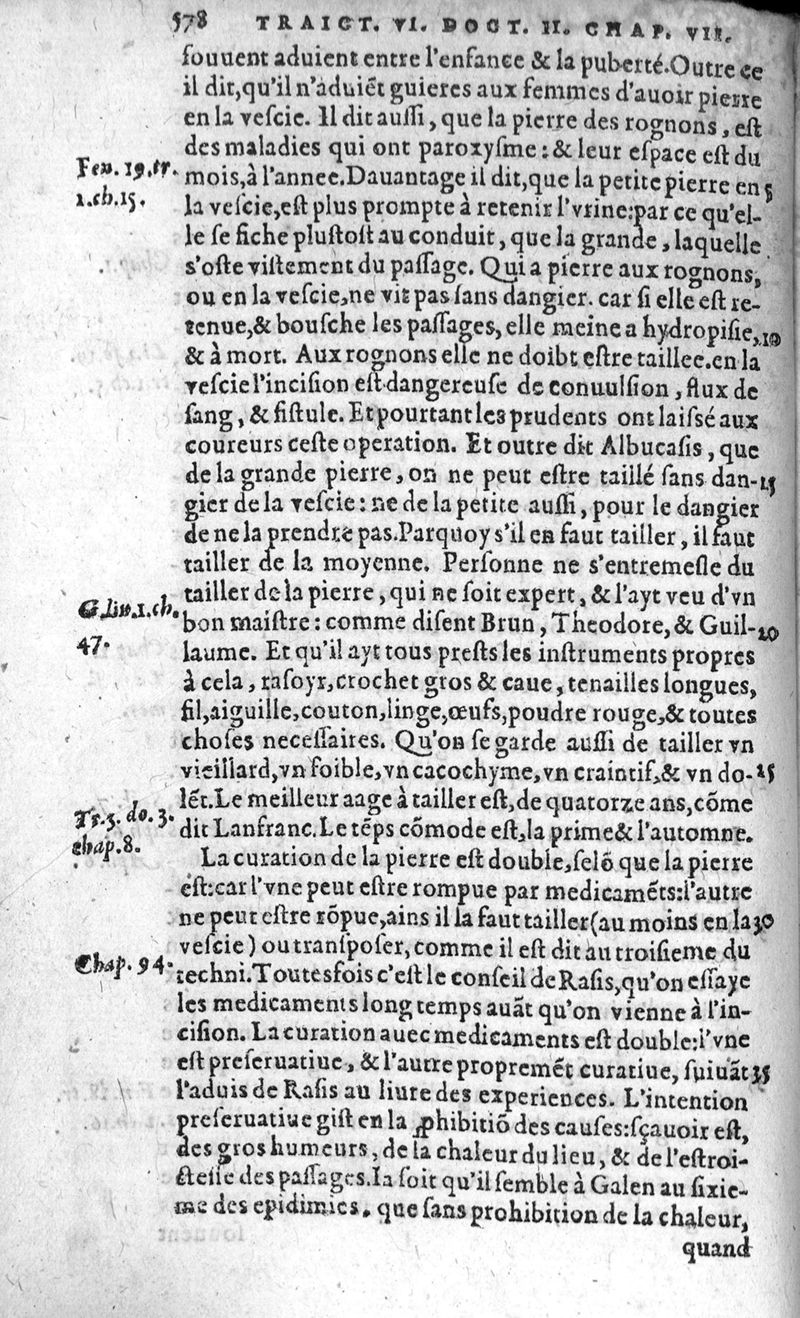 578 TRAICT. VI. DOCT. II. CHAP. VII.
ſouuent aduient entre l'enfance & la puberté. Outre ce
il dit, qu'il n'aduiẽt guieres aux femmes d'auoir pierre
en la veſcie. Il dit auſſi, que la pierre des rognons, eſt
des maladies qui ont paroxyſme: & leur eſpace eſt du
Fen. 19. tr.
1. ch. 15.
mois, à l'annee. Dauantage il dit, que la petite pierre en 5
la veſcie, eſt plus prompte à retenir l'vrine: par ce qu'el-
le ſe fiche pluſtoſt au conduit, que la grande, laquelle
s'oſte viſtement du paſſage. Qui a pierre aux rognons,
ou en la veſcie, ne vit pas ſans dangier. car ſi elle eſt re-
tenue, & bouſche les paſſages, elle meine a hydropiſie, 10
& à mort. Aux rognons elle ne doibt eſtre taillee. en la
veſcie l'inciſion eſt dangereuſe de conuulſion, flux de
ſang, & fiſtule. Et pourtant les prudents ont laiſſé aux
coureurs ceſte operation. Et outre dit Albucaſis, que
de la grande pierre, on ne peut eſtre taillé ſans dan- 15
gier de la veſcie: ne de la petite auſſi, pour le dangier
de ne la prendre pas. Parquoy s'il en faut tailler, il faut
tailler de la moyenne. Perſonne ne s'entremeſle du
tailler de la pierre, qui ne ſoit expert, & l'ayt veu d'vn
G. liu. 1. ch.
47.
bon maiſtre: comme diſent Brun, Theodore, & Guil- 20
laume. Et qu'il ayt tous preſts les inſtruments propres
à cela, raſoyr, crochet gros & caue, tenailles longues,
fil, aiguille, couton, linge, œufs, poudre rouge, & toutes
choſes neceſſaires. Qu'on ſe garde auſſi de tailler vn
vieillard, vn foible, vn cacochyme, vn craintif, & vn do- 25
lẽt. Le meilleur aage à tailler eſt, de quatorze ans, cõme
Tr. 3. do. 3.
chap. 8.
dit Lanfranc. Le tẽps cõmode eſt, la prime & l'automne.
La curation de la pierre eſt double, ſelõ que la pierre
eſt: car l'vne peut eſtre rompue par medicamẽts: l'autre
ne peut eſtre rõpue, ains il la faut tailler (au moins en la 30
veſcie) ou tranſpoſer, comme il eſt dit au troiſieme du
Chap. 94.
techni. Toutesfois c'eſt le conſeil de Raſis, qu'on eſſaye
les medicaments long temps auãt qu'on vienne à l'in-
ciſion. La curation auec medicaments eſt double: l'vne
eſt preſeruatiue, & l'autre propremẽt curatiue, ſuiuãt 35
l'aduis de Raſis au liure des experiences. L'intention
preſeruatiue giſt en la ꝓhibitiõ des cauſes: ſçauoir eſt,
des gros humeurs, de la chaleur du lieu, & de l'eſtroi-
cteſſe des paſſages. Ia ſoit qu'il ſemble à Galen au ſixie-
me des epidimies, que ſans prohibition de la chaleur,
quand